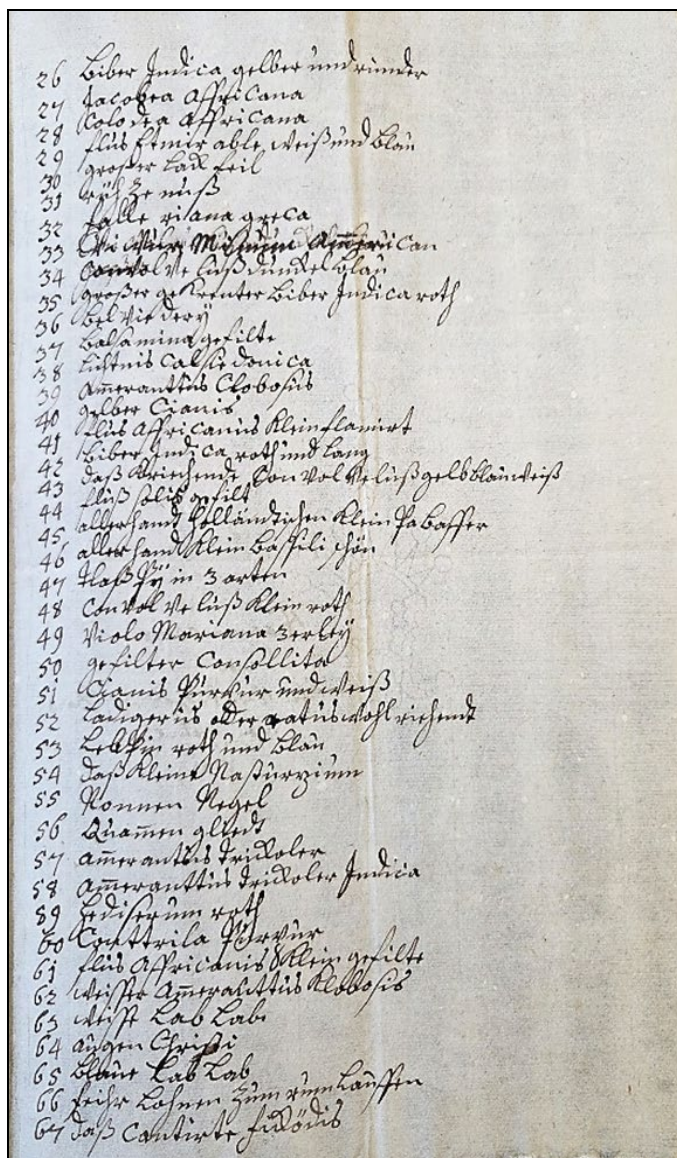 26 Biber Indica gelber und runder
27 Jacobea Affricana
28 Colodea Affricana
29 flus Etmirable weiß und blau
30 großer Lack feil
31 nuß
32 falle riana greca
33 Can
34 Convolveluß dunckel blau
35 großer Biber Indica roth
36 belviedery
37 balsamina gefilte
38 Lichtnis Calsiedonica
39 Ammeranttus Clobosius
40 gelber Cianis
41 flus Affricanus Klein flamirt
42 Biber Indica roth und lang
43 daß Kriechende Convolveluß gelb blau weiß
44 fluß solis gefilt
45 allerhandt Holländischen Klein Pabaffer
46 allerhandt Klein Baßili schön
47 in 3 arten
48 Convolveluß Klein roth
49 Violo Mariana 3erley
50 gefilter Consollita
51 Cianis Purpur und weiß
52 Ladigerus oder wohl richendt
53 roth und blau
54 daß Kleine Nasturzium
55 Nonnen Negel
56 Quammen gliedt
57 Ammeranttus trickoler
58 Ammeranttus trickoler Indica
59 Hediserum roth
60 Purpur
61 flus Affricanis Klein gefilte
62 weisser Ammeranttus Klobosis
63 weisse Lab Lab
64 augen Christi
65 blaue Lab Lab
66 feihr Bohnen Zum rum Lauffen
67 daß